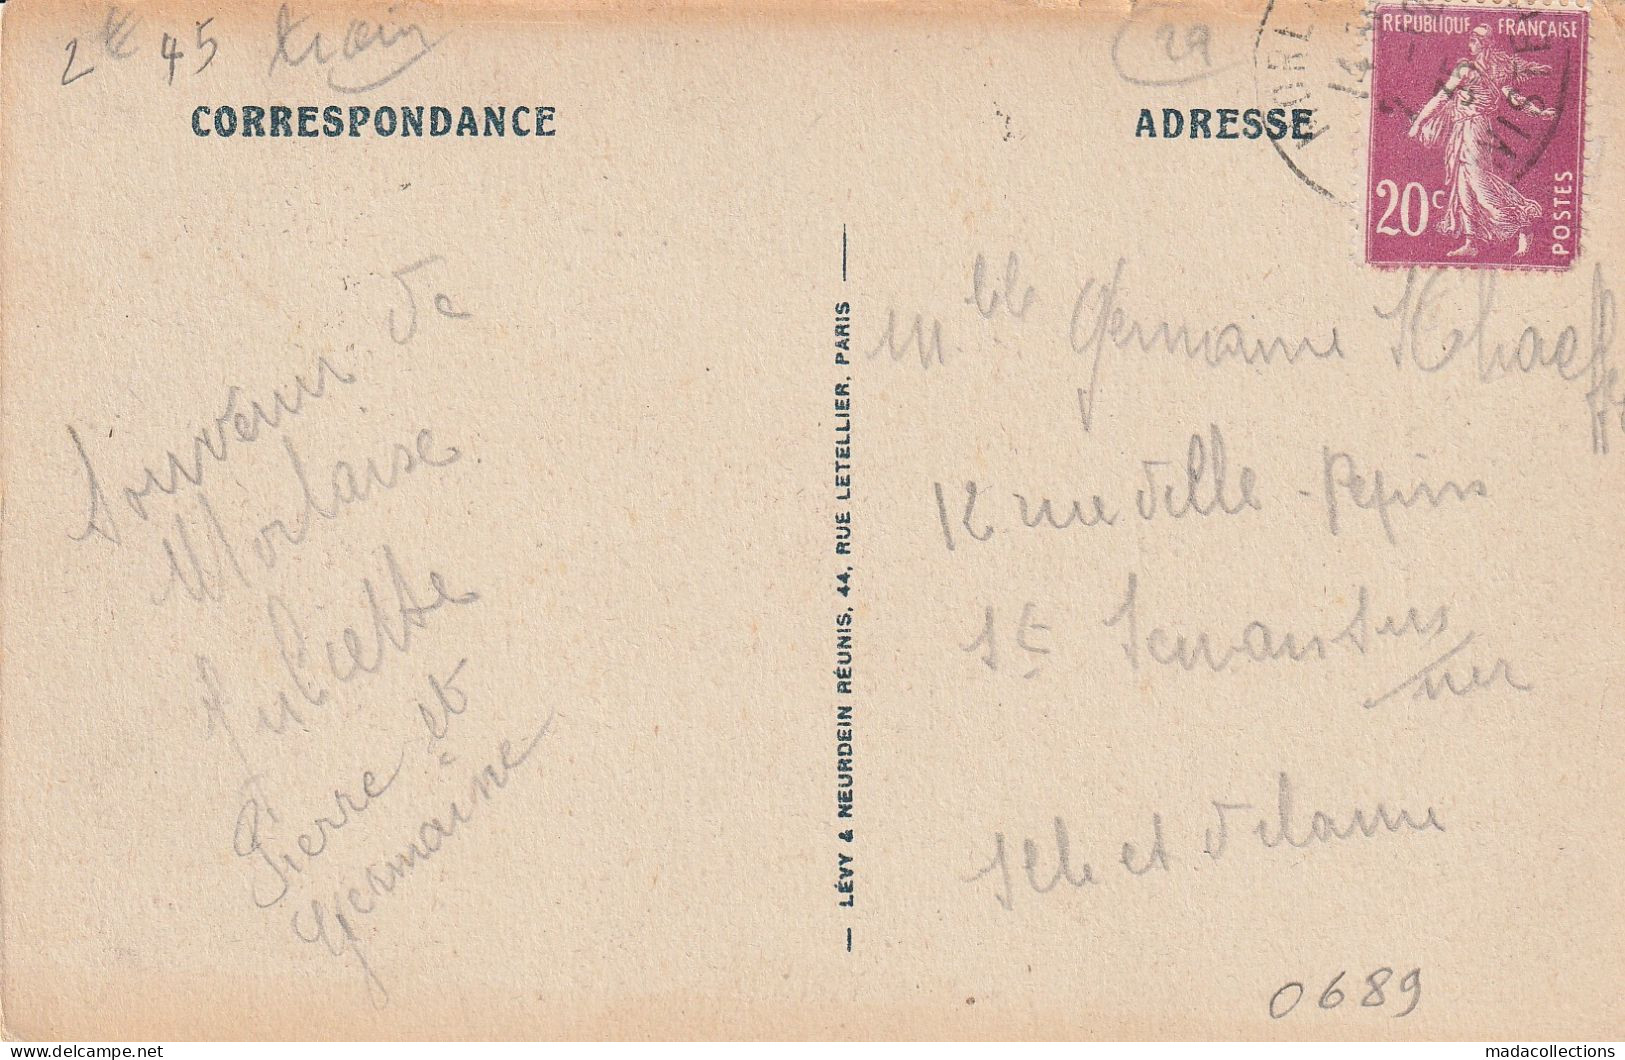 2€ 45 train
29
CORRESPONDANCE
ADRESSE
MORL
14
35
NISTE
REPUBLIQUE FRANÇAISE
20c
POSTES
Souvenir de
Morlaise
Juliette
Pierre et
Germaine
— LÉVY & NEURDEIN RÉUNIS, 44, RUE LETELLIER, PARIS —
Mlle Germaine
12 rue Ville-Pepins
St Servan sur
mer
Ille et Vilaine
0689
delcampe.net
madacollections